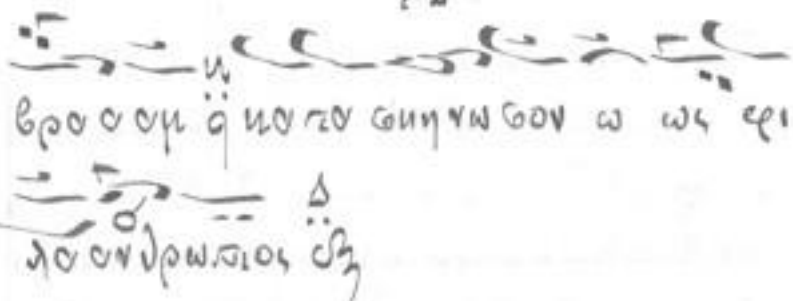 βρα α αμ κα τα σκη νω σον ω ως φι
λα αν θρω πος